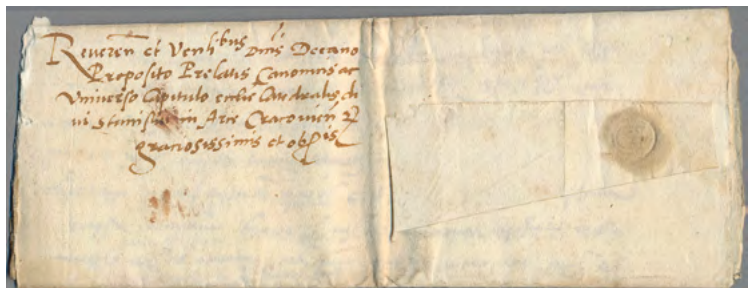 Reveren et Venlibus Dnis Decano
Preposito Prelatis Canonicis ac
Universo Capitulo ecclie Cathedralis di
vi Stanislai in Arce Cracovien
graciosissimis et obss